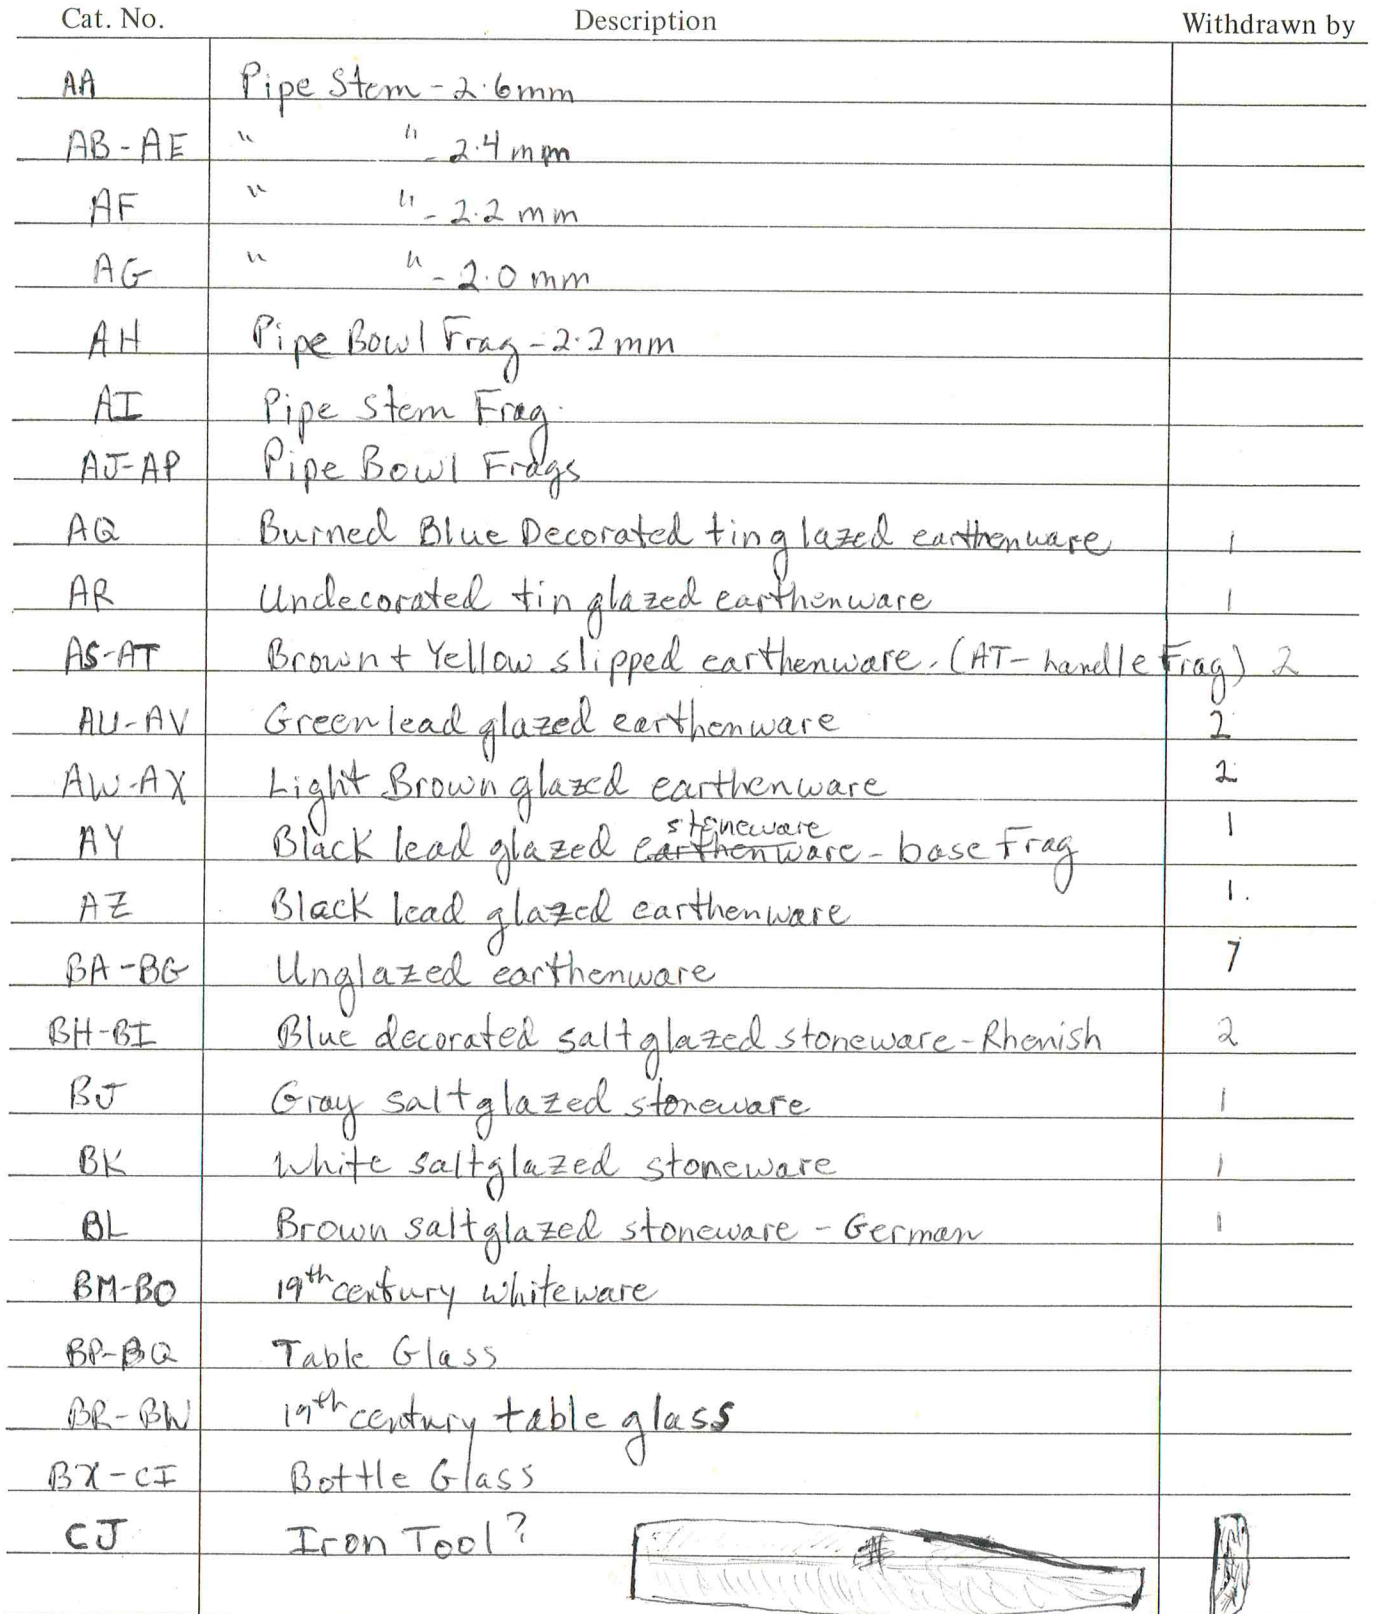 Cat. No. Description Withdrawn by
AA Pipe Stem - 2.6mm
AB - AE " " - 2.4 mm
AF " " - 2.2 mm
AG " " - 2.0 mm
AH Pipe Bowl Frag - 2.2 mm
AI Pipe Stem Frag.
AJ-AP Pipe Bowl Frags
AQ Burned Blue Decorated tin glazed earthenware 1
AR Undecorated tin glazed earthenware 1
AS-AT Brown + Yellow slipped earthenware. (AT- handle Frag) 2
AU-AV Green lead glazed earthenware 2
AW-AX Light Brown glazed earthenware 2
stoneware
AY Black lead glazed earthenware - base Frag 1
AZ Black lead glazed earthenware 1.
BA-BG Unglazed earthenware 7
BH-BI Blue decorated saltglazed stoneware - Rhenish 2
BJ Gray saltglazed stoneware 1
BK White saltglazed stoneware 1
BL Brown saltglazed stoneware - German 1
BM-BO 19th century whiteware
BP-BQ Table Glass
BR-BW 19th century table glass
BX-CI Bottle Glass
CJ Iron Tool?